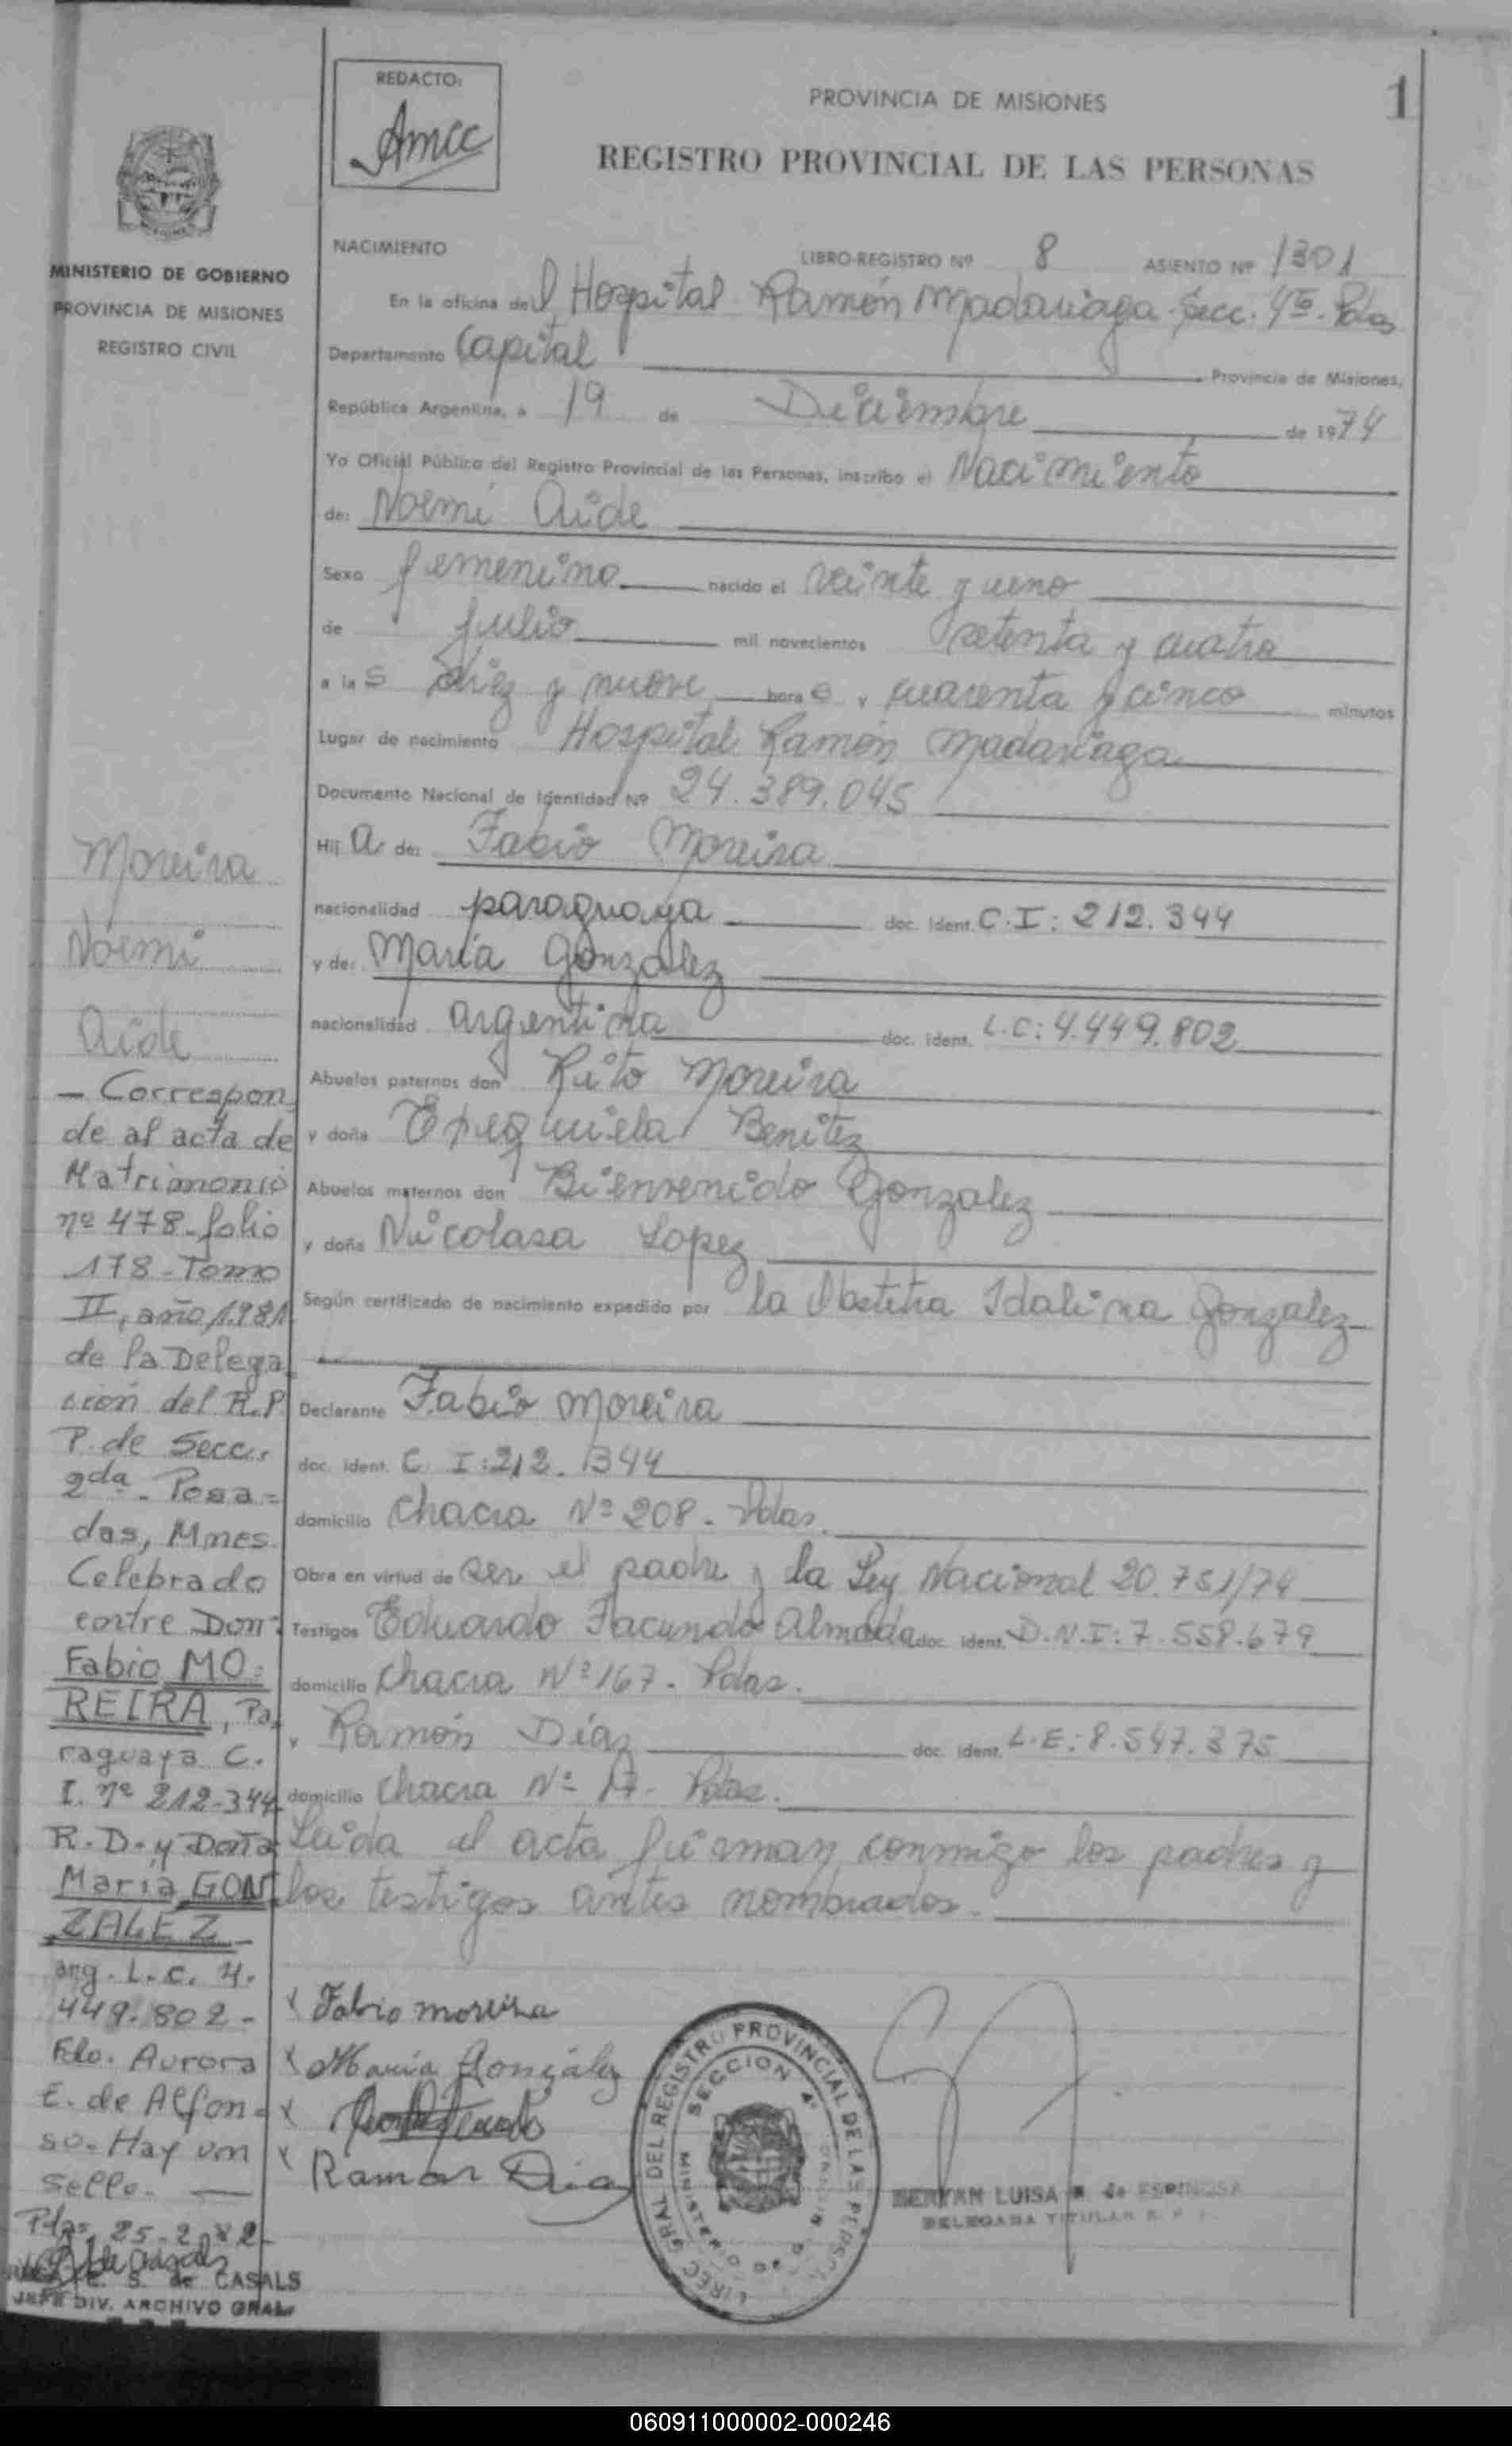 REDACTO:
Amcc
PROVINCIA DE MISIONES
1
REGISTRO PROVINCIAL DE LAS PERSONAS
MINISTERIO DE GOBIERNO
PROVINCIA DE MISIONES
REGISTRO CIVIL
NACIMIENTO LIBRO-REGISTRO Nº 8 ASIENTO Nº 1301
En la oficina del Hospital Ramón Madariaga - Secc. 4ta. Pdas
Departamento Capital Provincia de Misiones,
República Argentina, a 19 de Diciembre de 1974
Yo Oficial Público del Registro Provincial de las Personas, inscribo el Nacimiento
de: Noemi Aide
Sexo femenino nacido el veinte y uno
de Julio mil novecientos setenta y cuatro
a las diez y nueve horas y cuarenta y cinco minutos
Lugar de nacimiento Hospital Ramón Madariaga
Documento Nacional de Identidad Nº 24.389.045
Hija de: Fabio Moreira
nacionalidad paraguaya doc. Ident. C.I: 212.344
y de: María Gonzalez
nacionalidad argentina doc. ident. L.C: 4.449.802
Abuelos paternos don Rito Moreira
y doña Benitez
Abuelos maternos don Bienvenido Gonzalez
y doña Nicolasa Lopez
Según certificado de nacimiento expedido por la Obstetra Idalina Gonzalez
Declarante Fabio Moreira
doc. ident. C. I: 212.344
domicilio Chacra Nº 208. Pdas.
Obra en virtud de ser el padre y la Ley Nacional 20.751/74
Testigos Eduardo Facundo Almada doc. ident. D.N.I: 7.558.679
domicilio Chacra Nº 167. Pdas.
y Ramón Díaz doc. ident. L.E: 8.547.375
domicilio Chacra Nº 17. Pdas.
Leida el acta firman conmigo los padres y
los testigos antes nombrados.
Fabio moreira
María González
Ramon Dias
DIREC. GRAL. DEL REGISTRO PROVINCIAL DE LAS PERSONAS
SECCION 4ª
BERYAN LUISA de ESPINOSA
DELEGADA TITULAR R. P.
Moreira
Noemi
Aide
- Correspon
de al acta de
Matrimonio
nº 478-folio
178-Tomo
II, año 1981
de la Delega
ción del R.P.
P. de Secc.
2da. Posa=
das, Mnes.
Celebrado
entre Don:
Fabio MO=
REIRA, Pa
raguaya C.
I. nº 212-344
R.D. y Doña
María GON
ZALEZ
arg. L.C. 4.
449.802-
Fdo. Aurora
E. de Alfon=
so. Hay un
sello.
Pdas, 25-2-82
E. S. de CASALS
JEFE DIV. ARCHIVO GRAL
060911000002-000246